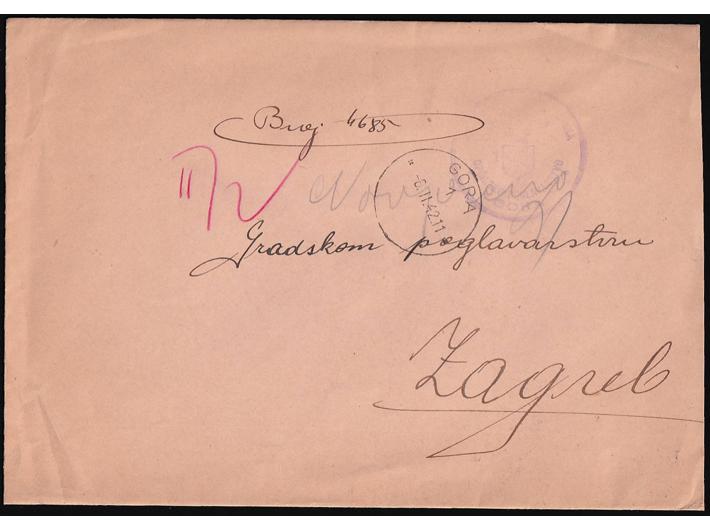 Broj 4685
II/2
GORA
1
-6.II.42.11
Gradskom poglavarstvu
Zagreb